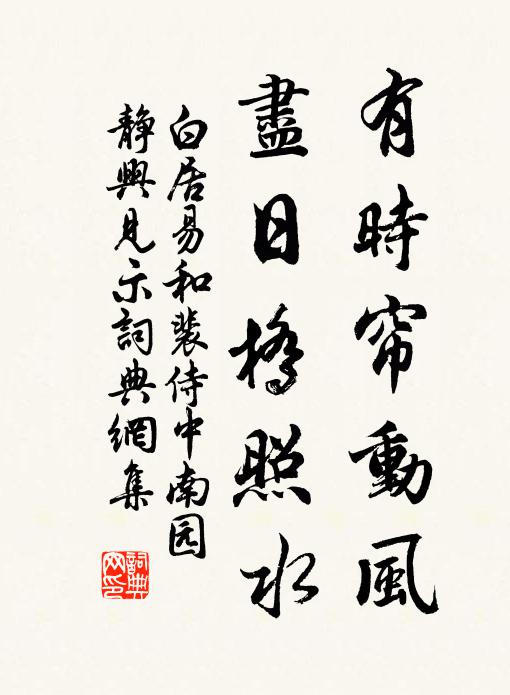 有時帘動風
盡日橋照水
白居易和裴侍中南园
静興見示詞典網集
詞典
网印